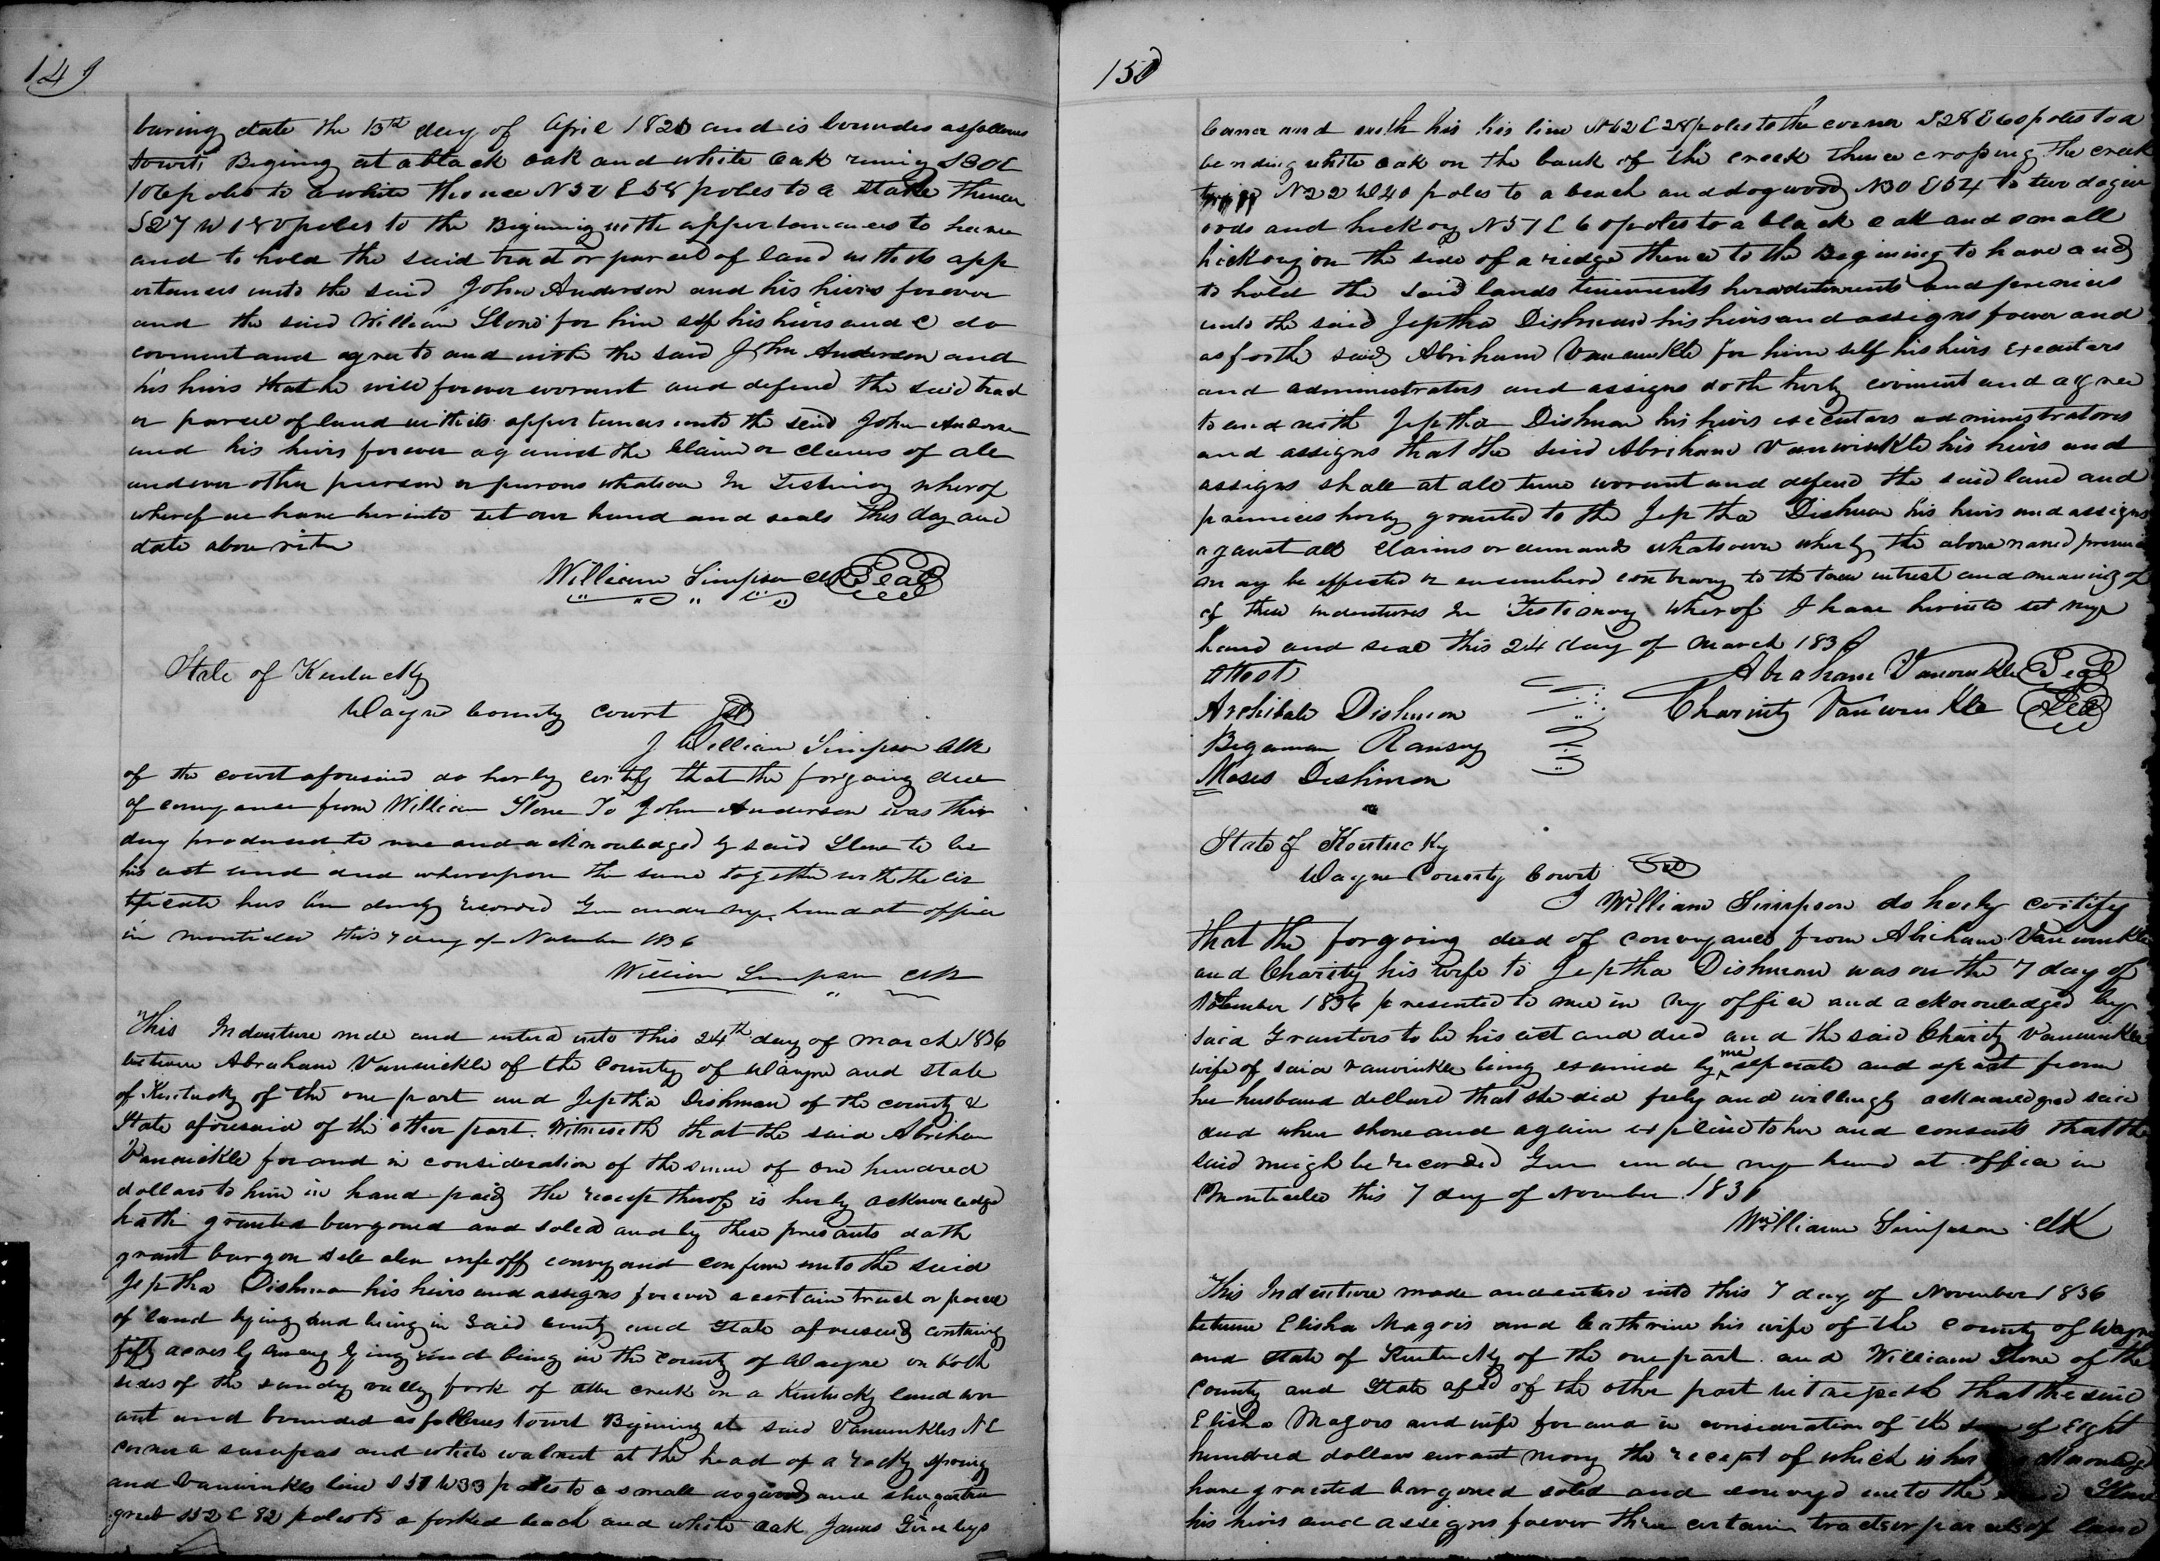 149
baring date the 13th day of April 1820 and is boundes asfollows
towit Begining at a black oak and white oak runing S30E
106 poles to a white thence N50 E58 poles to a stake thence
S27 W180 poles to the Biginning with appertanances to have
and to hold the said tract or parcel of land with its app
ertances unto the said John Anderson and his heirs forever
and the said William Stone for him self his heirs and C do
covinent and agree to and with the said John Anderson and
his heirs that he will forever worrant and defend the said tract
or parcel of land with its appertances unto the said John Anderson
and his heirs forever against the claim or claims of all
and ever other person or persons whatsover In Testimony wherof
wherof we have herinto set our hand and seals This day and
date above riten
William Simpson clk Seal
State of Kentucky
Wayne County court Sct
I William Simpson Clk
of the court aforesaid do herby certify that the forgoing deed
of conveyance from William Stone To John Anderson was this
day produced to me and acknowledged by said Stone to be
his act and deed wherupon the same together with the cer
tificate has ben duely recorded Given under my hand at office
in monticello this 7 day of November 1836
William Simpson Clk
This Indenture mde and enterd into this 24th day of march 1836
between Abraham Vanwickle of the County of Wayne and state
of Kentucky of the one part and Jeptha Dishman of the county &
State aforesaid of the other part. Witnesseth that the said Abriham
Vanwickle for and in consideration of the sum of one hundred
dollars to him in hand paid the receip therof is herby acknowledge
hath granted bargoned and soled and by these presants doth
grant bargon sell alen infeoff convey and confirm unto the said
Jeptha Dishman his heirs and assigns forever a certain tract or parcel
of land lying and being in said county and State aforesaid containing
fifty acres by survey lying and being in the county of Wayne on both
sides of the sandy vally fork of otter creek on a Kentucky land wor
ant and bounded as follows towit Bigining at said Vanwinkles NE
corner a sasafras and white walnut at the head of a rocky spring
and Vanwinkles line S57 W33 poles to a small dogwood and shugartree
grub S52 E 82 poles to a forked beach and white oak James
150
Corner and with his his line N62 E28 poles to the corner S28 E60 poles to a
bending white oak on the bank of the creek thence croping the creek
N22 W40 poles to a beach and dogwood N30 E54 to two dogw
oods and hickory N57 E 60 poles to a black oak and small
hickory on the side of a ridge thence to the Begining to have and
to hold the said lands tenements heraditements and premices
unto the said Jeptha Dishman his heirs and assigns forever and
as forthe said Abriham Vanwinkle for him self his heirs Executors
and administrators and assigns doth herby covinent and agree
to and with Jeptha Dishman his heirs executors administratores
and assigns that the said Abriham Vanwinkle his heirs and
assigns shall at all time worant and defend the said land and
premices herby granted to the Jeptha Dishman his heirs and assigns
against all claims or demands whatsover wherby the above named premices
may be effected or encumberd contrary to the true intrest and meaning of
of these indentures In Testimony wherof I have herinto set my
hand and seal this 24 day of march 1836
Attest
Abraham Vanwinkle Seal
Archibale Dishmon
Charity Vanwinkle Seal
Bigaman Ramsey
Moses Dishmon
State of Kentucky
Wayne County Court Sct
I William Simpson do herby certify
that the forgoing deed of conveyance from Abriham Vanwinkle
and Charity his wife to Jeptha Dishman was on the 7 day of
November 1836 presented to me in my office and acknowledged by
said Grantors to be his act and deed and the said Charity Vanwinkle
wife of said vanwinkle being examined by me seperate and apart from
her husband declared that she did frely and willingly acknowledged said
deed when shone and again explaind to her and consents that the
said meigh be recorded Given under my hand at office in
Monticello this 7 day of November 1836
William Simpson Clk
This Indenture made and enterd into this 7 day of November 1836
betwen Elisha Magois and Cathrine his wife of the County of Wayne
and State of Kentucky of the one part. and William Stone of the
County and State afsd of the other part witnesseth that the said
Elisha Magois and wife for and in consideration of the sum of Eight
hundred dollars currant mony the recept of which is her acknowledged
have granted bargoned soled and conveyd unto the said Stone
his heirs and assigns forever three certain tracts or parcels of land